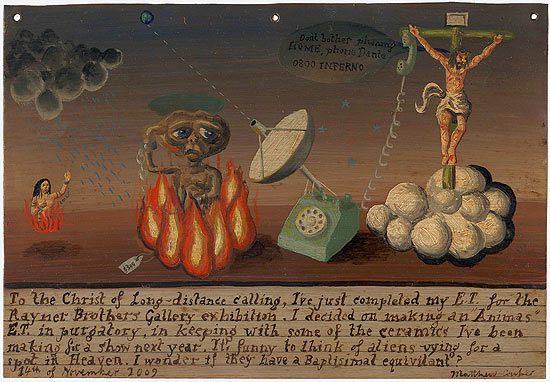 Don't bother phoning
HOME, phone Dante
0800 INFERNO
To the Christ of Long-distance calling, I've just completed my E.T. for the
Rayner Brothers Gallery exhibition. I decided on making an "Animas"
E.T. in purgatory, in keeping with some of the ceramics I've been
making for a show next year. It's funny to think of aliens vying for a
spot in Heaven. I wonder if they have a Baptisimal equivilant?
14th of November 2009
Matthew